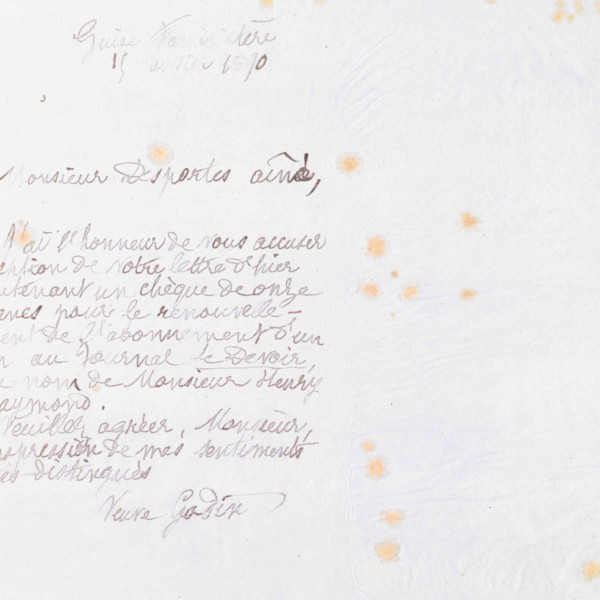 Guise Familistère
15 1890
Monsieur Desportes aîné,
J'ai l'honneur de vous accuser
ception de votre lettre d'hier
ntenant un chèque de onze
ancs pour le renouvelle-
ent de l'abonnement d'un
n au Journal le Devoir,
u nom de Monsieur Henry
aymond.
Veuillez agréer, Monsieur,
expression de mes sentiments
ès distingués
Veuve Godin